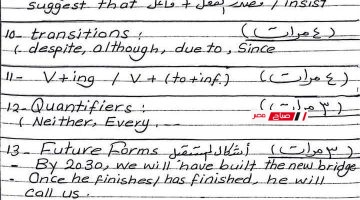 suggest that + فاعل + مصدر الفعل / insist
10- transitions : (٤ مرات)
( despite, although, due to, Since
11- V+ing / V + (to+inf.) (٤ مرات)
12- Quantifiers : (٣ مرات)
( Neither, Every ...
صباح مصر
13- Future Forms أشكال المستقبل (٣ مرات)
- By 2030, we will have built the new bridge
- Once he finishes/has finished, he will
call us.